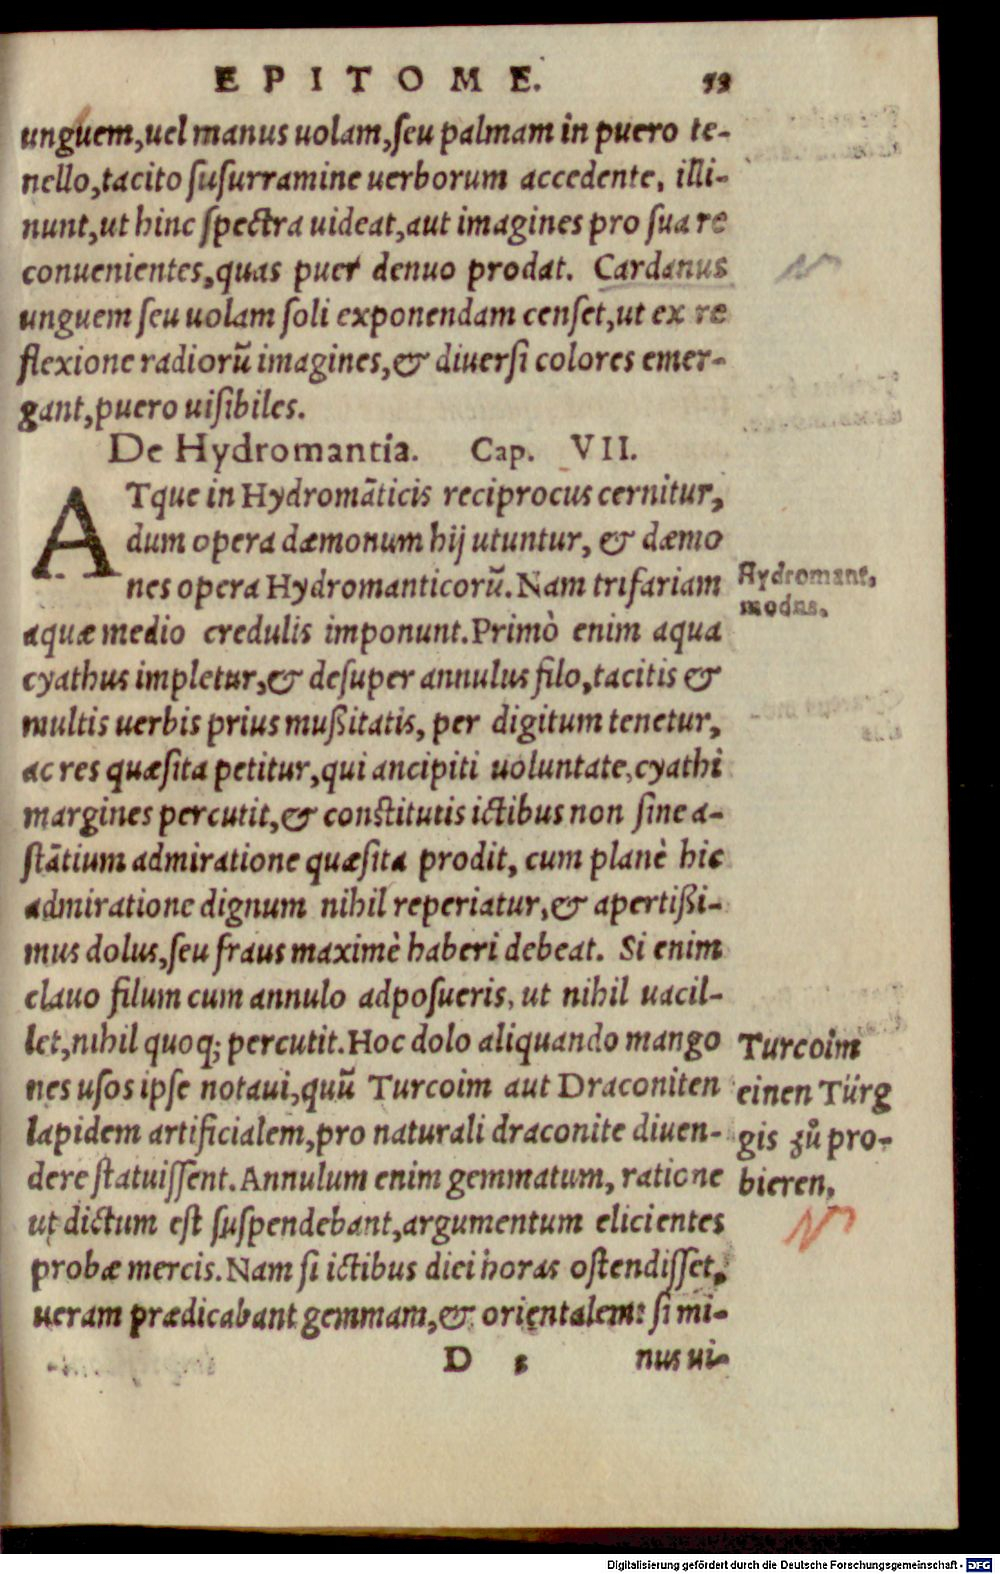 EPITOME. 53
unguem,uel manus uolam,ſeu palmam in puero te-
nello,tacito ſuſurramine uerborum accedente, illi-
nunt,ut hinc ſpectra uideat,aut imagines pro ſua re
conuenientes,quas puer denuo prodat. Cardanus
unguem ſeu uolam ſoli exponendam cenſet,ut ex re
flexione radiorũ imagines,& diuerſi colores emer-
gant,puero uiſibiles.
De Hydromantia. Cap. VII.
ATque in Hydromãticis reciprocus cernitur,
dum opera dæmonum hij utuntur, & dæmo
nes opera Hydromanticorũ.Nam trifariam
Hydromant.
modus.
aquæ medio credulis imponunt.Primò enim aqua
cyathus impletur,& deſuper annulus filo,tacitis &
multis uerbis prius mußitatis, per digitum tenetur,
ac res quæſita petitur,qui ancipiti uoluntate,cyathi
margines percutit,& conſtitutis ictibus non ſine a-
ſtãtium admiratione quæſita prodit, cum planè hic
admiratione dignum nihil reperiatur,& apertißi-
mus dolus,ſeu fraus maximè haberi debeat. Si enim
clauo filum cum annulo adpoſueris, ut nihil uacil-
let,nihil quoq; percutit.Hoc dolo aliquando mango
nes uſos ipſe notaui,quũ Turcoim aut Draconiten
lapidem artificialem,pro naturali draconite diuen-
dere ſtatuiſſent.Annulum enim gemmatum, ratione
Turcoim
einen Türg
gis zů pro-
bieren.
ut dictum eſt ſuſpendebant,argumentum elicientes
probæ mercis.Nam ſi ictibus diei horas oſtendiſſet,
ueram prædicabant gemmam,& orientalem: ſi mi-
D 5 nus ui-
Digitalisierung gefördert durch die Deutsche Forschungsgemeinschaft - DFG